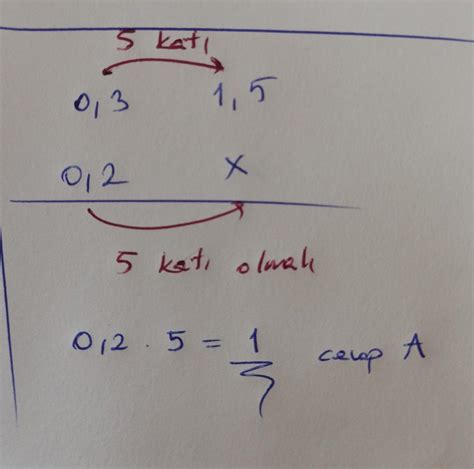 5 katı
0,3 1,5
0,2 x
5 katı olmalı
0,2 . 5 = 1 cevap A